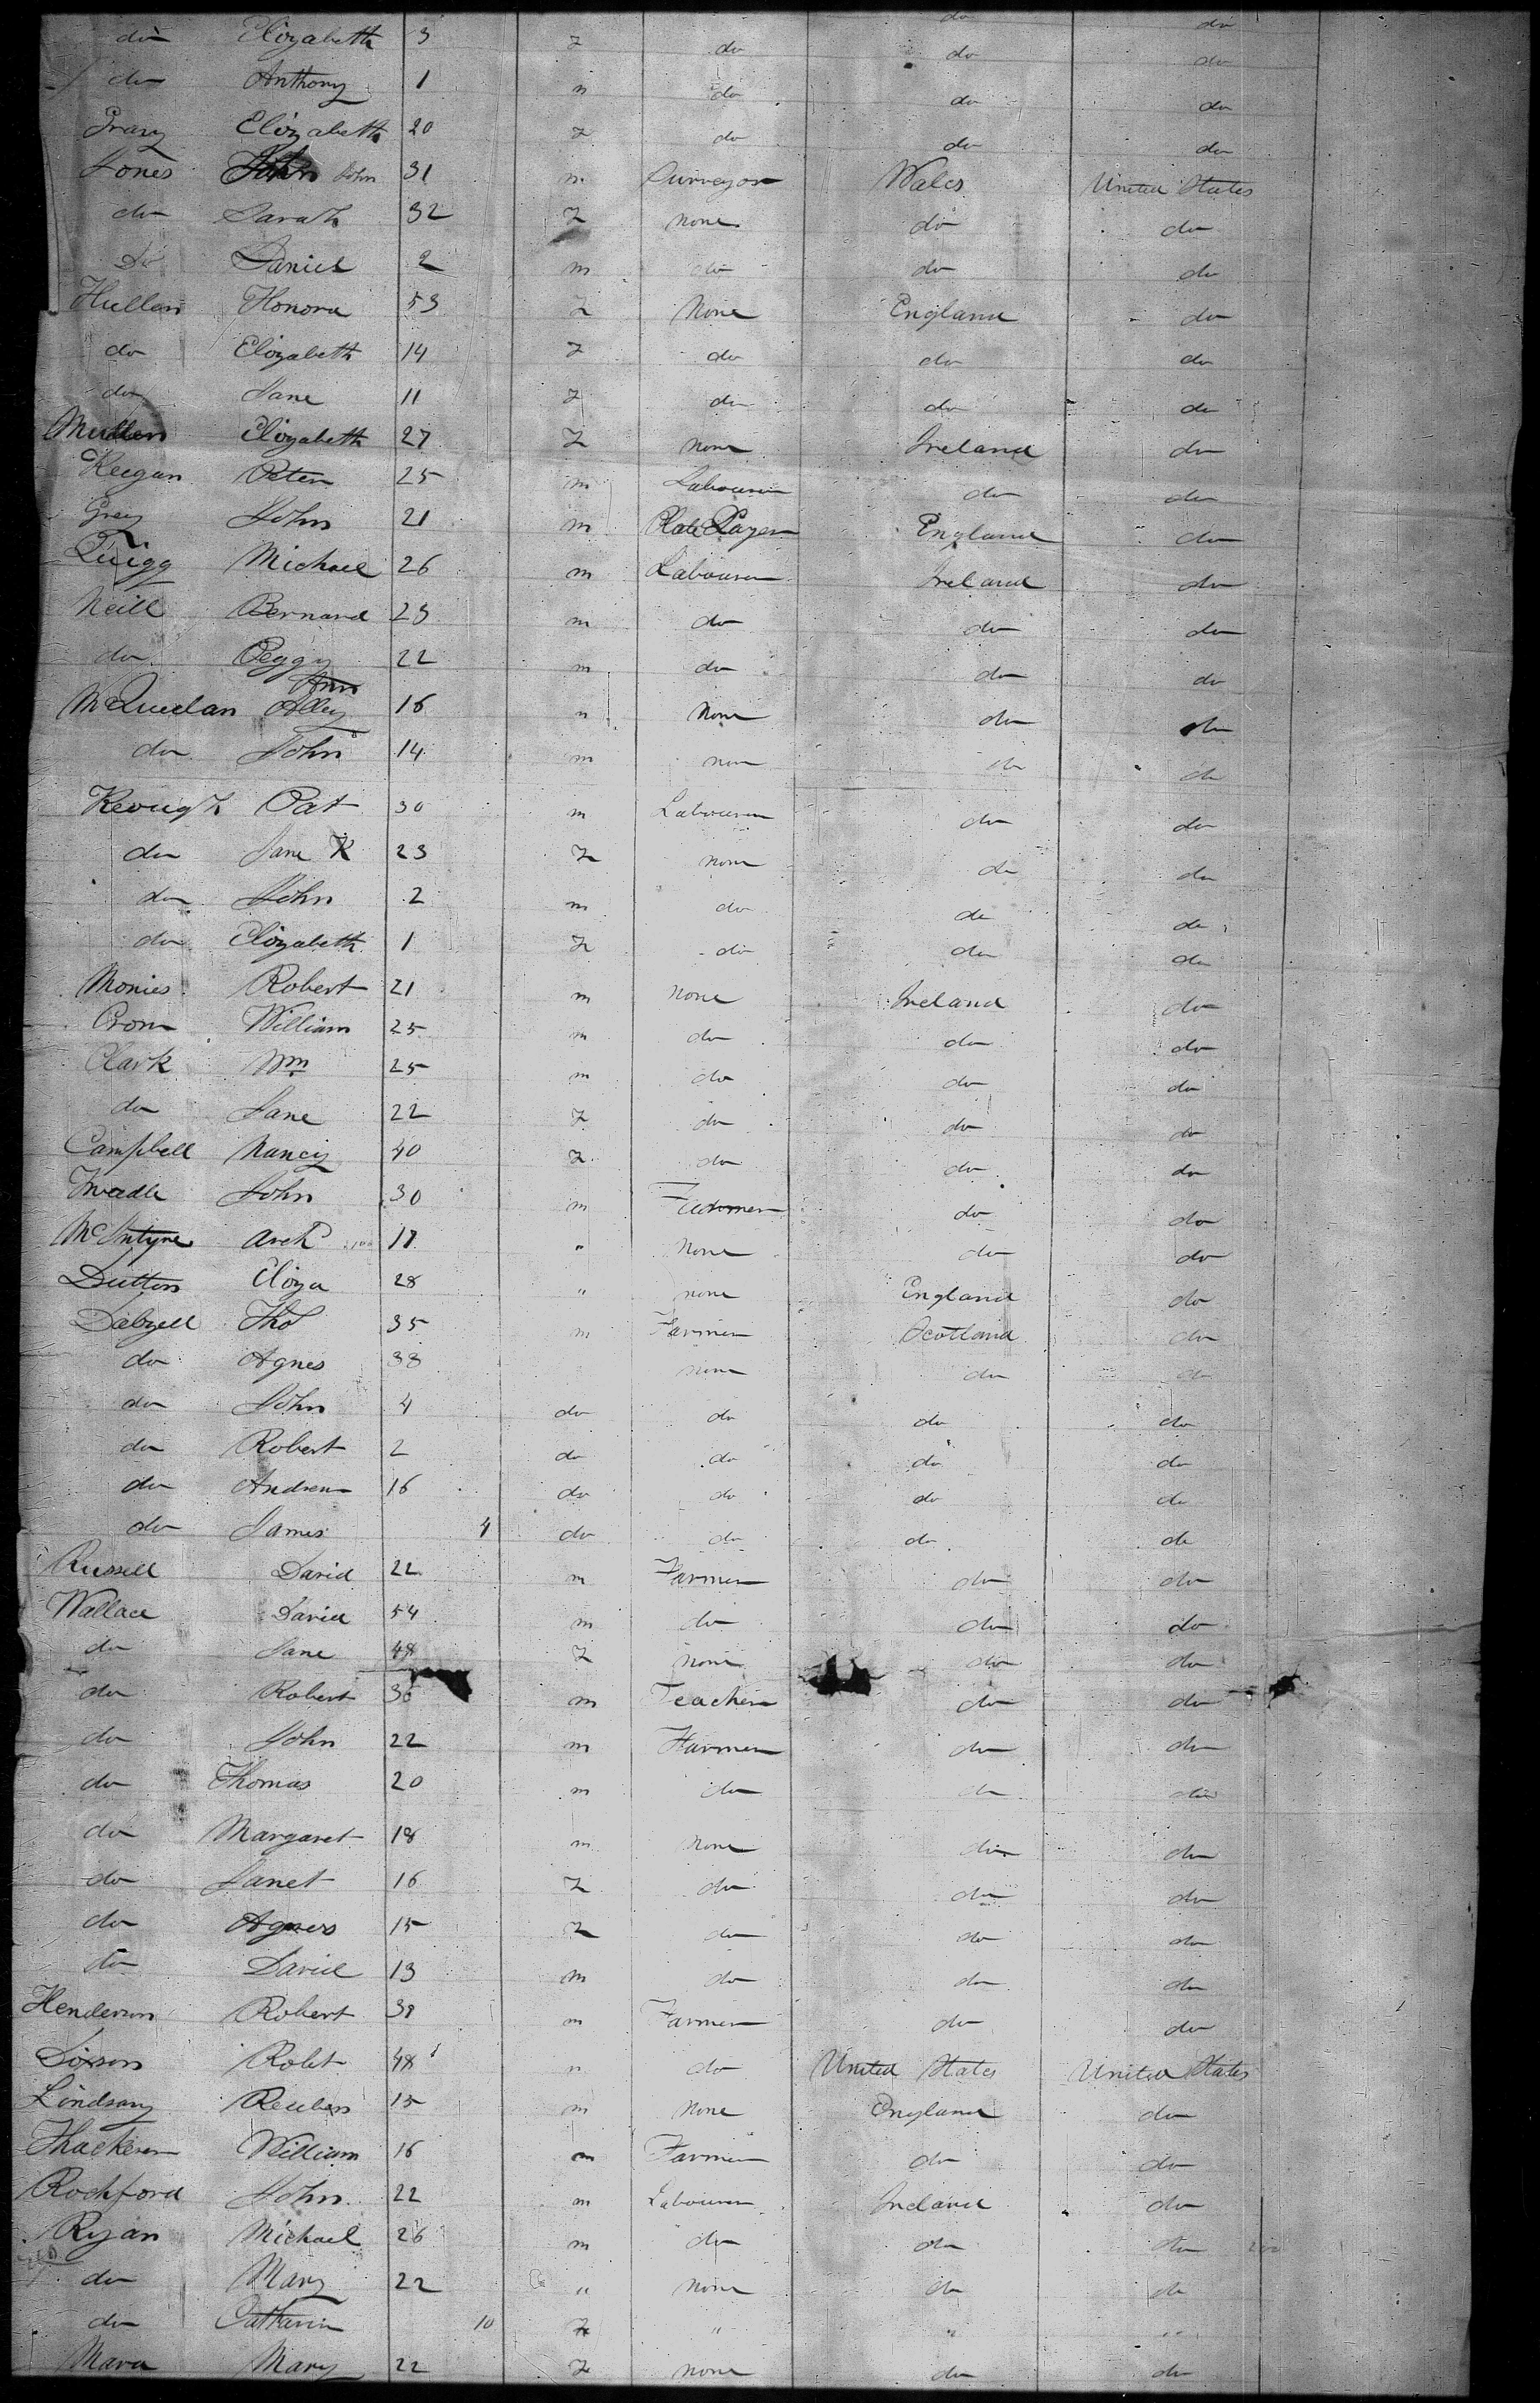 do do
do Elizabeth 3 f do do do
do Anthony 1 m do do do
Gray Elizabeth 20 f do do do
Jones John John 31 m Surveyor Wales United States
do Sarah 32 f none do do
Do Daniel 2 m do do do
Hullen Honora 53 f None England do
do Elizabeth 14 f do do do
do Jane 11 f do do do
Mullen Elizabeth 27 f none Ireland do
Keegan Peter 25 m Labourer do do
Grey John 21 m Plate Layer England do
Quigg Michael 26 m Labourer Ireland do
Neill Bernard 23 m do do do
do Peggy 22 m do do do
Ann
McQuedan Alley 16 " None do do
do John 14 m none do do
Keough Pat 30 m Labourer do do
do Jane K 23 f none do do
do John 2 m do do do
do Elizabeth 1 f do do do
Monies Robert 21 m none Ireland do
Crom William 25 m do do do
Clark Wm 25 m do do do
do Jane 22 f do do do
Campbell Nancy 40 f do do do
John 30 m do do
McIntyre Arch 17 " None do do
Dutton Eliza 28 " none England do
Dalzell Tho 35 m Farmer Scotland do
do Agnes 33 none do do
do John 4 do do do do
do Robert 2 do do do do
do Andrew 16 do do do do
do James 4 do do do do
Russell David 22 m Farmer do do
Wallace David 54 m do do do
do Jane 48 f none do do
do Robert 36 m Teacher do do
do John 22 m Farmer do do
do Thomas 20 m do do do
do Margaret 18 m none do do
do Janet 16 f do do do
do Agnes 15 f do do do
do David 13 m do do do
Henderson Robert 38 m Farmer do do
Robt 48 " do United States United States
Lindsay Reuben 15 m None England do
Thackeren William 16 m Farmer do do
Rochford John 22 m Labourer Ireland do
Ryan Michael 26 m do do do
do Mary 22 " none do do
do Catharin 10 f " " "
Mara Mary 22 f none do do